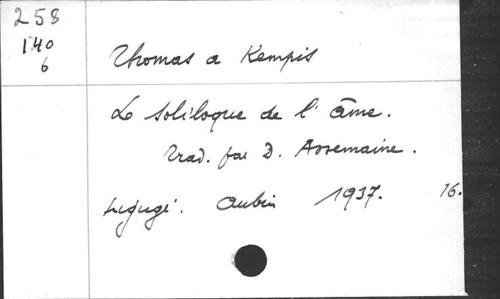 258
140
6
Thomas a Kempis
Le soliloque de l'âme.
Trad. par D. Assemaine.
Ligugé. Aubin 1937. 16.